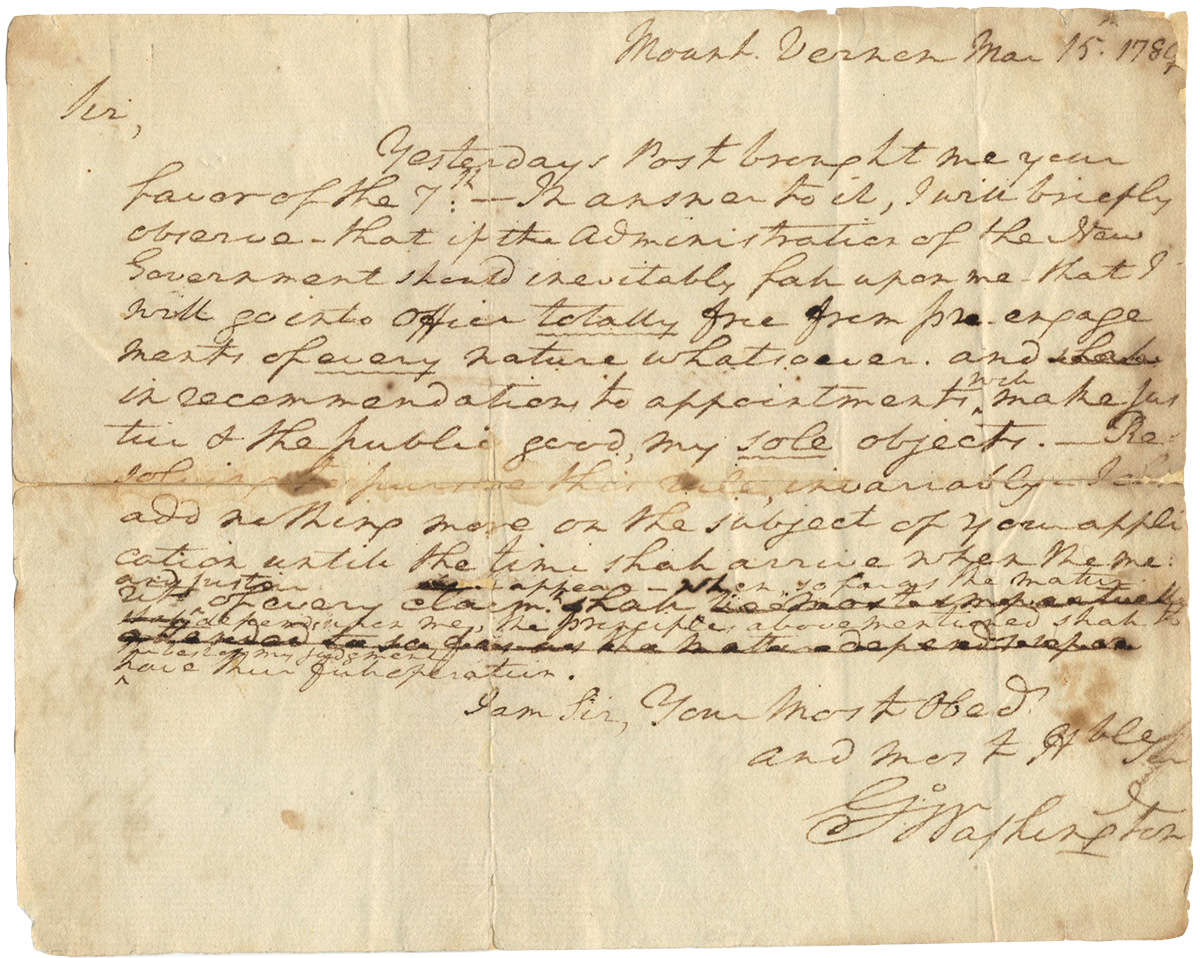 Mount Vernon Mar 15th. 1789
Sir,
Yesterdays Post brought me your
favor of the 7th. — In answer to it, I will briefly
observe – that if the Administration of the New
Government should inevitably fall upon me – that I
will go into Office totally free from pre-engage
ments of every nature whatsoever. and shall
will
in recommendations to appointments make Jus
tice & the public good, my sole objects. — Re-
solving to pursue this rule, invariably – I
add nothing more on the subject of your appli
cation until the time shall arrive when the me:
and justice appear – when, so far as the matter
rits of every claim shall be most
depends upon me, the principles above mentioned shall to
so far as the matter depends upon
the best of my judgment
have their full operation.
I am Sir, Your Most Obed.
and most Hble Ser
Go. Washington